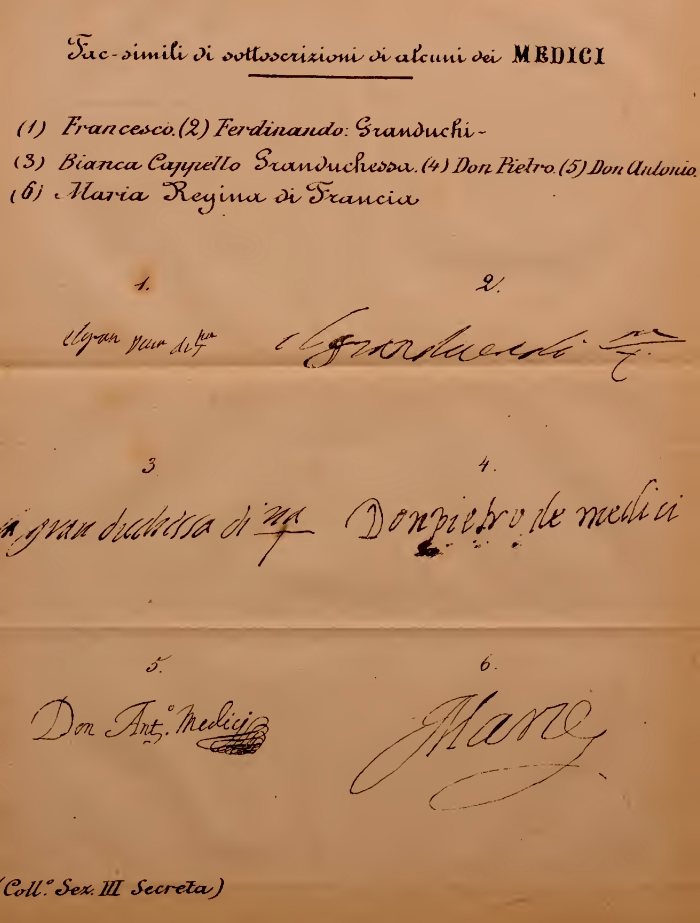 Fac-simili di sottoscrizioni di alcuni dei MEDICI
(1) Francesco. (2) Ferdinando: Granduchi -
(3) Bianca Cappello Granduchessa. (4) Don Pietro. (5) Don Antonio.
(6) Maria Regina di Francia
1. 2.
Il gran Duca di T Il Granduca di T.
3 4.
gran duchessa di T Don pietro de medici
5. 6.
Don Ant.º Medici Marie
(Coll.º Sez. III Secreta)